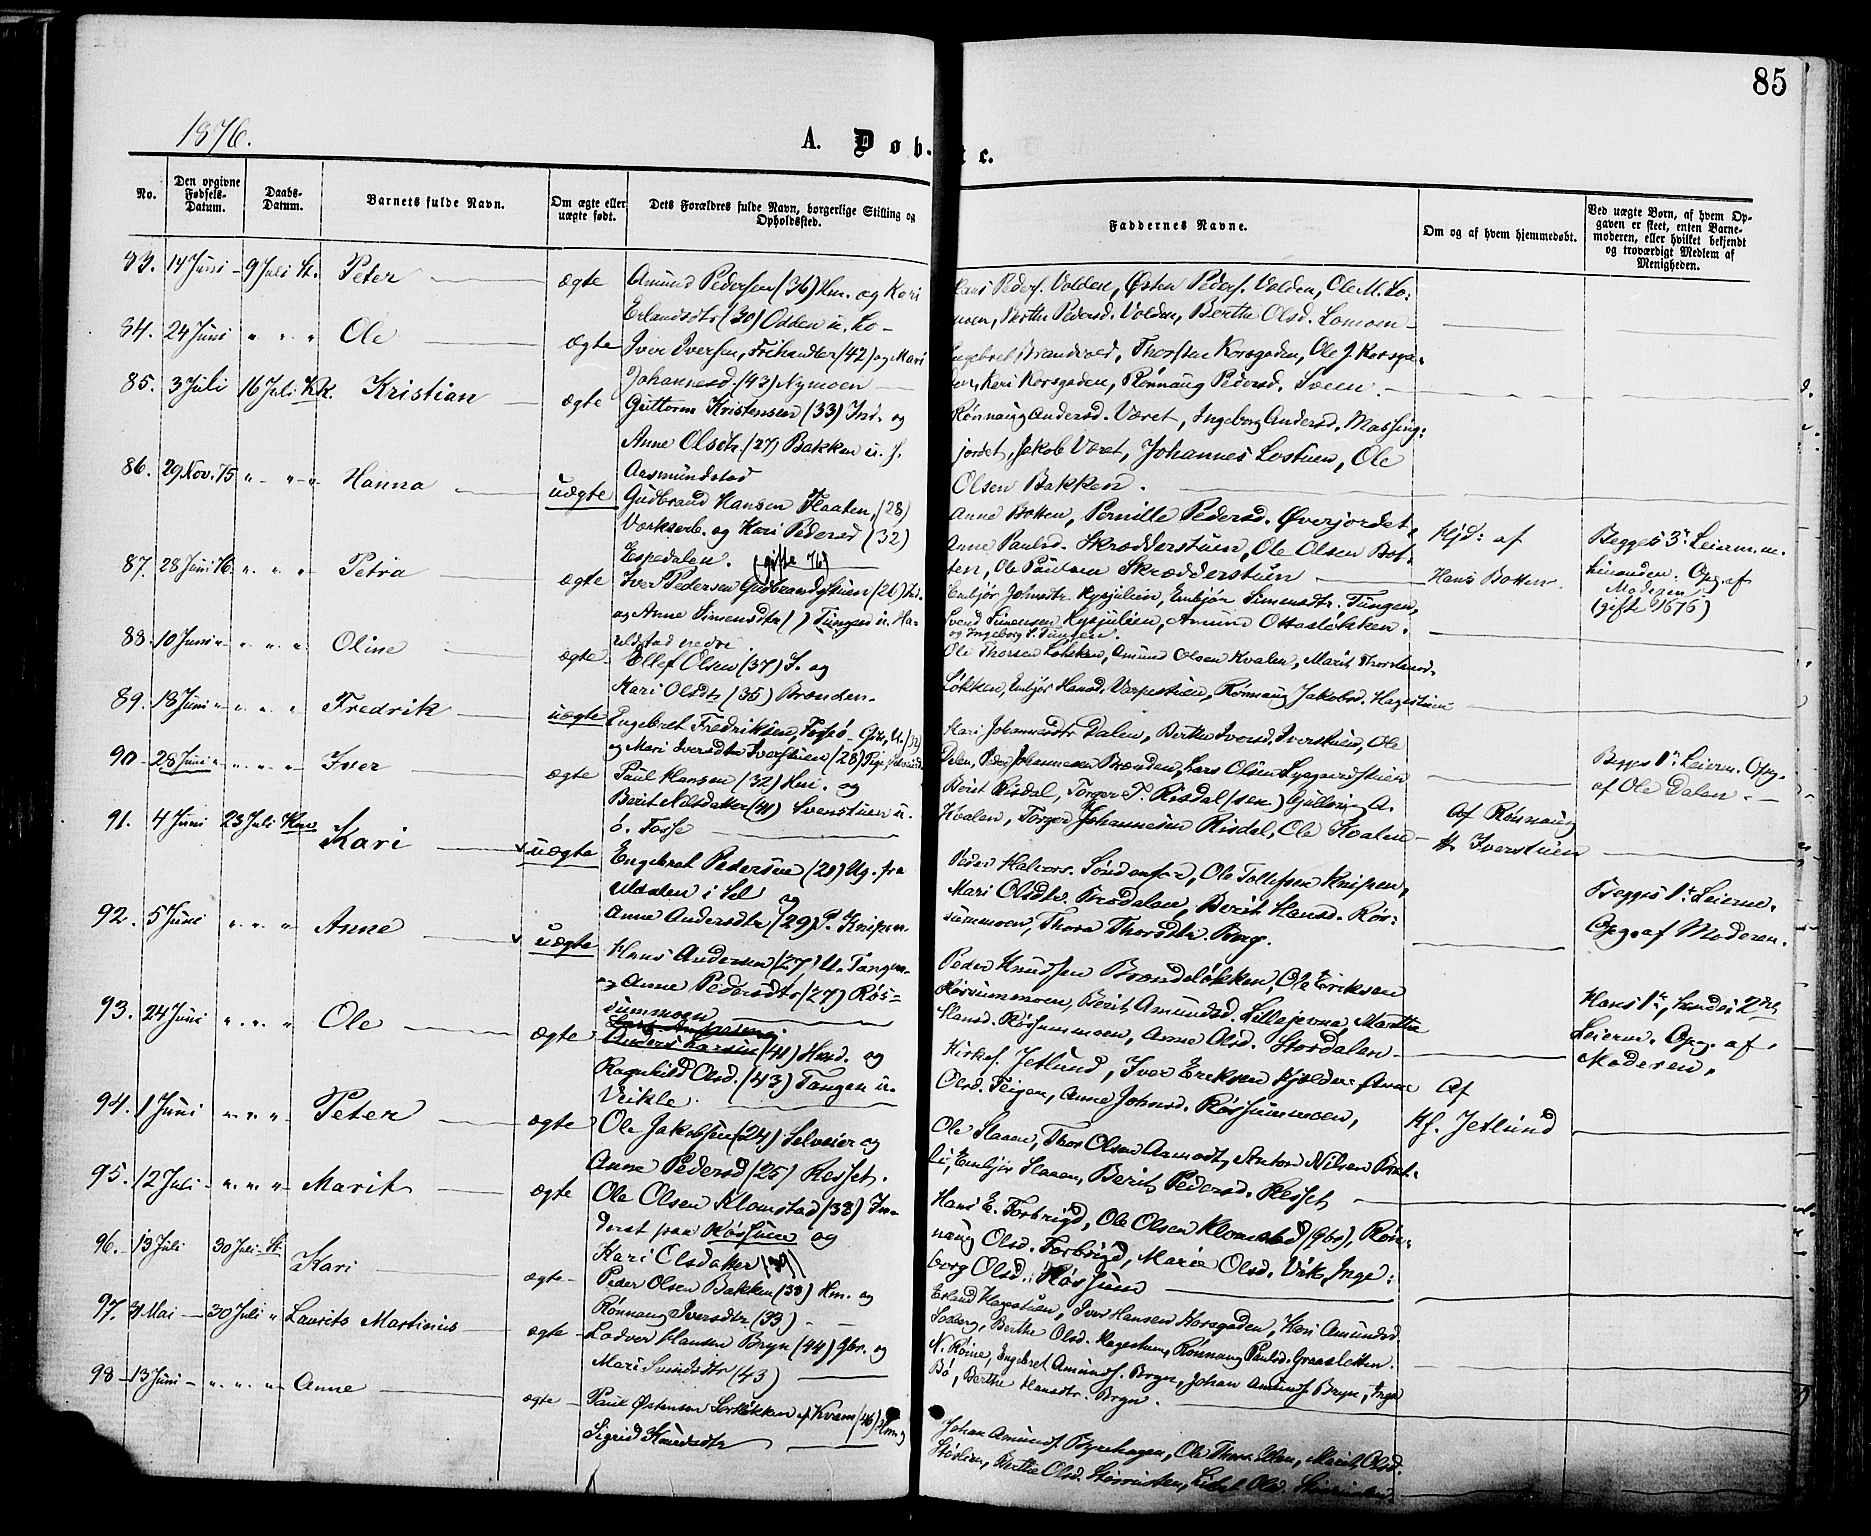 85
1876.
A. Døb. &c.
No.
Den opgivne Fødsels-Datum.
Daabs-Datum.
Barnets fulde Navn.
Om ægte eller uægte født.
Dets Forældres fulde Navn, borgerlige Stilling og Opholdssted.
Faddernes Navne.
Om og af hvem hjemmedøbt.
Ved uægte Børn, af hvem Opgaven er skeet, enten Barnemoderen, eller hvilket bekjendt og troværdigt Medlem af Menigheden.
83. 14 Juni - 9 Juli St. Peter ægte
Amund Pedersen (36) Hm. og Kari
Erlandsdtr (30) Odden u. Lo-
Hans Peders. Volden, Østen Peders. Volden, Ole M. Lo:
moen, Berthe Pedersd. Volden, Berthe Olsd. Lomoen
84. 24 Juni " " " Ole ægte
Iver Iversen, Frihandler (42) og Mari
Johannesd. (43) Nymoen
Engebret Brandvold, Thorsten Korsgaden, Ole J. Korsga-
den, Kari Korsgaden, Rønnaug Pedersd. Sveen.
85. 3 Juli 16 Juli KK. Kristian ægte
Guttorm Kristensen (33) Ind. og
Anne Olsdtr. (27) Bakken u. s.
Aasmundstad
Rønnaug Andersd. Været, Ingeborg Andersd. Massing:
jordet, Jakob Været, Johannes Lostuen, Ole
Olsen Bakken.
86. 29 Nov. 75 " " " Hanna uægte
Gudbrand Hansen Flaaten, (28)
Værkserb. og Kari Pedersd (32)
Espedalen. (gifte 76)
Anne Botten, Pernille Pedersd. Øverjordet,
Anne Paulsd. Skrædderstuen, Ole Olsen Bot-
ten, Ole Paulsen Skrædderstuen
Hjd: af
Hans Botten
Begges 3' Leierm.
Opg. af
Moderen
(gifte 1876)
87. 28 Juni 76. " " " Petra ægte
Iver Pedersen Gudbrandstuen (26) Ind.
og Anne Simensdtr ( ) Tungen u. Ha-
raldstad nedre
Embjør Johnsdtr. Hysjulien, Embjør Simensdtr. Tungen,
Svend Simensen Hysjulien, Amund Ottosløkken.
og Ingeborg S. Tungen.
88. 10 Juni " " " Oline ægte
Ellef Olsen (37) S. og
Kari Olsdtr (35) Brænden
Ole Thorsen Løkken, Amund Olsen Kvalen, Marit Thorstensd.
Løkken, Embjør Hansd. Varpestuen, Rønnaug Jakobsd. Hagestuen
89. 18 Juni " " " Fredrik uægte
Engebret Fredriksen, Fossø
og Mari Iversdtr Iverstuen (28) Pige
Mari Johannesdtr Dalen, Berthe Iversd. Iverstuen, Ole
Dalen, Peder Johannesen Brænden, Lars Olsen Lyegaardstuen
Begges 1' Leierm. Opg.
af Ole Dalen.
90. 28 Juni " " " Iver ægte
Paul Hansen (32) Hm. og
Berit Nilsdatter (41) Svenstuen u.
ø. Fosse
Berit Risdal, Torger T. Risdal (sen) Gulling A.
Kvalen, Torger Johannesen Risdal, Ole Kvalen
Af Rønnaug
H. Iverstuen
91. 4 Juni 23 Juli Kari uægte
Engebret Pedersen (28) Ug. fra
Uldalen i Sel og
Anne Andersdtr (29) P. Knipen
Peder Halvors. Søndenfor, Ole Tollefsen Knipen,
Mari Olsdtr. Brødalen, Berit Hansd. Røs-
summoen, Thora Thorsdtr. Berg.
Begges 1' Leierm.
Opg. af Moderen.
92. 5 Juni " " " Anne uægte
Hans Andersen (27) U. Tangen
og Anne Pedersdtr (27) Røs-
summoen
Peder Knudsen Brændeløkken, Ole Eriksen
Røssummoen, Berit Amundsd. Lillejevne, Marthe
Hansd. Røssummoen, Anne Olsd. Stordalen
Hans 1', hendes 2det
Leierm. Opg. af
Moderen.
93. 24 Juni " " " Ole ægte
Anders Larsen (41) Hmd. og
Ragnhild Olsd. (43) Tangen u.
Veikle.
Kirkes. Jetlund, Iver Eriksen Kjeldar Anne
Olsd. Teigen, Anne Johnsd. Røssummoen,
Af
Ks. Jetlund
94. 1 Juni " " " Peter ægte
Ole Jakobsen (24) Selveier og
Anne Pedersd (25) Resset.
Ole Slaaen, Thor Olsen Aamodt, Anton Nilsen Brat-
li, Embjør Slaaen, Berit Pedersd. Resset
95. 12 Juli " " " Marit ægte
Ole Olsen Klomstad (38) In-
derst paa Røssum og
Kari Olsdatter (39)
Hans E. Forbrigd, Ole Olsen Klomstad (gbr), Røn-
naug Olsd. Forbrigd, Marie Olsd. Vik, Inge:
borg Olsd. Røssum
96. 13 Juli 30 Juli St. Kari ægte
Peder Olsen Bakken (38) Hm. og
Rønnaug Iversdtr (33)
Erland Hagestuen, Iver Hansen Korsgaden, Kari Amundsd.
Solberg, Berthe Olsd. Hagestuen, Rønnaug Paulsd. Graasletten.
97. 31 Mai 30 Juli " Laurits Martinius ægte
Lodver Hansen Bryn (44) Gbr. og
Mari Svendsdtr (43)
N. Røine, Engebret Amunds. Bryn, Johan Amunds. Bryn, Inger
Bø, Berthe Hansdtr. Bryn.
98 13 Juni " " " Anne ægte
Paul Østensen Lorkløkken af Kvam (46) Hm. og
Sigrid Knudsdtr
Johan Amunds. Ole Marit Olsd.
Berthe Olsd.